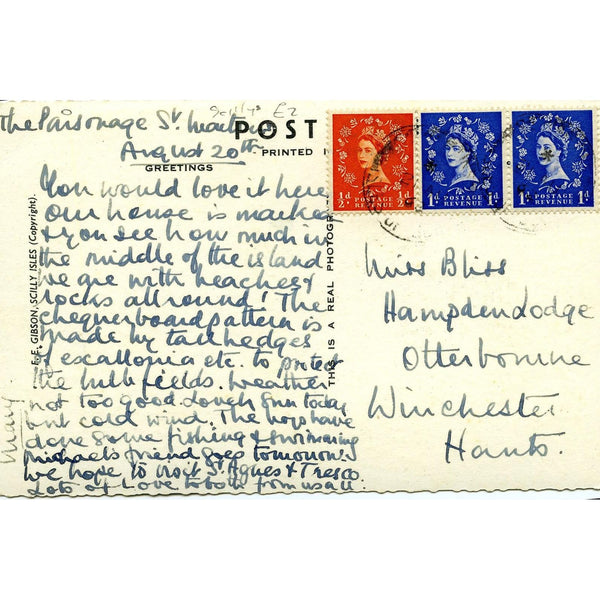 The Parsonage St. Martins
August 20th
POST
PRINTED I
GREETINGS
You would love it here
Our house is marked
& you see how much in
the middle of the island
we are with beaches &
rocks all round! The
chequerboard pattern is
made by tall hedges
of escallonia etc. to protect
the bulb fields. Weather
not too good though sun today
but cold wind. The boys have
done some fishing & swimming
Michael's friend goes tomorrow.
We hope to visit St Agnes & Tresco.
Lots of love to both from us all
Mary
F. E. GIBSON, SCILLY ISLES (Copyright).
THIS IS A REAL PHOTOGR
½d ½d
POSTAGE
REVENUE
1d 1d
POSTAGE
REVENUE
1d 1d
POSTAGE
REVENUE
Miss Bliss
Hampden Lodge
Otterbourne
Winchester
Hants.
£2